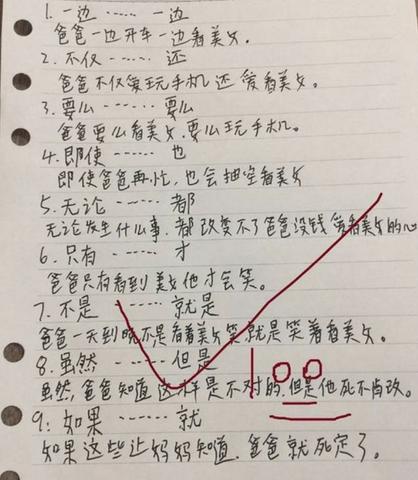 1. 一边 …… 一边
爸爸一边开车一边看美女。
2. 不仅 …… 还
爸爸不仅爱玩手机还爱看美女。
3. 要么 …… 要么
爸爸要么看美女,要么玩手机。
4. 即使 …… 也
即使爸爸再忙,也会抽空看美女
5. 无论 …… 都
无论发生什么事,都改变不了爸爸没钱爱看美女的心
6. 只有 …… 才
爸爸只有看到美女他才会笑。
7. 不是 …… 就是
爸爸一天到晚不是看着美女笑就是笑着看美女。
8. 虽然 …… 但是
虽然,爸爸知道这样是不对的,但是他死不肯改。
100
9: 如果 …… 就
如果这些让妈妈知道,爸爸就死定了。